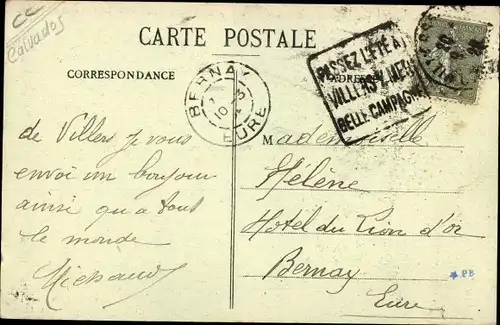 CC
Calvados
CARTE POSTALE
CORRESPONDANCE
ADRESSE
PASSEZ L'ÉTÉ A
VILLERS S/MER
BELLE CAMPAGNE
BERNAY
EURE
de Villers je vous
envoi un bonjour
ainsi qu'a tout
le monde
Michaud
Mademoiselle
Hélène
Hotel du Lion d'or
Bernay
Eure
* PB